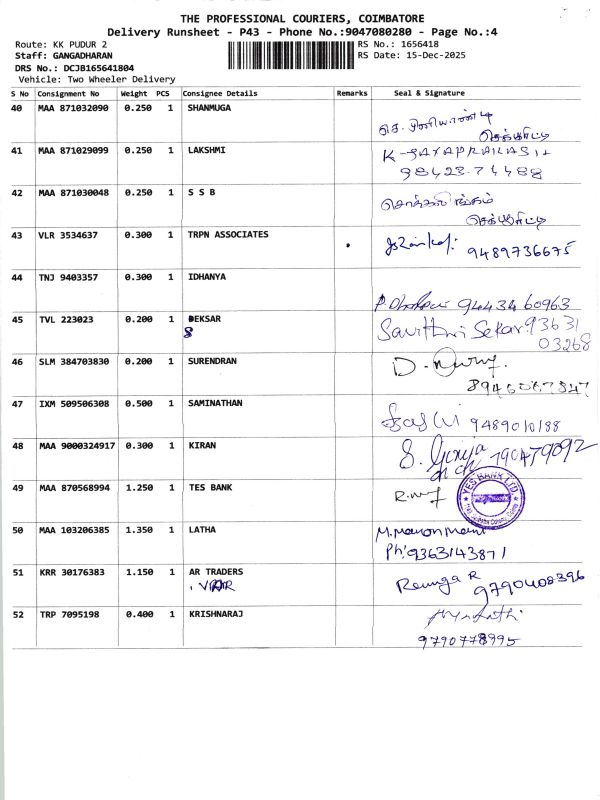 THE PROFESSIONAL COURIERS, COIMBATORE
Delivery Runsheet - P43 - Phone No.:9047080280 - Page No.:4
Route: KK PUDUR 2 RS No.: 1656418
Staff: GANGADHARAN RS Date: 15-Dec-2025
DRS No.: DCJB165641804
Vehicle: Two Wheeler Delivery
S No Consignment No Weight PCS Consignee Details Remarks Seal & Signature
40 MAA 871032090 0.250 1 SHANMUGA
41 MAA 871029099 0.250 1 LAKSHMI
K-JAYAPRAKASH
98423-74488
42 MAA 871030048 0.250 1 S S B
சொக்கலிங்கம்
43 VLR 3534637 0.300 1 TRPN ASSOCIATES
9489736675
44 TNJ 9403357 0.300 1 IDHANYA
9443460963
45 TVL 223023 0.200 1 DEKSAR
8 Savithri Sekar 93631
03268
46 SLM 384703830 0.200 1 SURENDRAN
D.
47 IXM 509506308 0.500 1 SAMINATHAN
9489010188
48 MAA 9000324917 0.300 1 KIRAN
S. Goriya 790479092
49 MAA 870568994 1.250 1 TES BANK
YES BANK LTD
50 MAA 103206385 1.350 1 LATHA
Ph: 9363143871
51 KRR 30176383 1.150 1 AR TRADERS
Renuga R 9790408396
52 TRP 7095198 0.400 1 KRISHNARAJ
9790778995